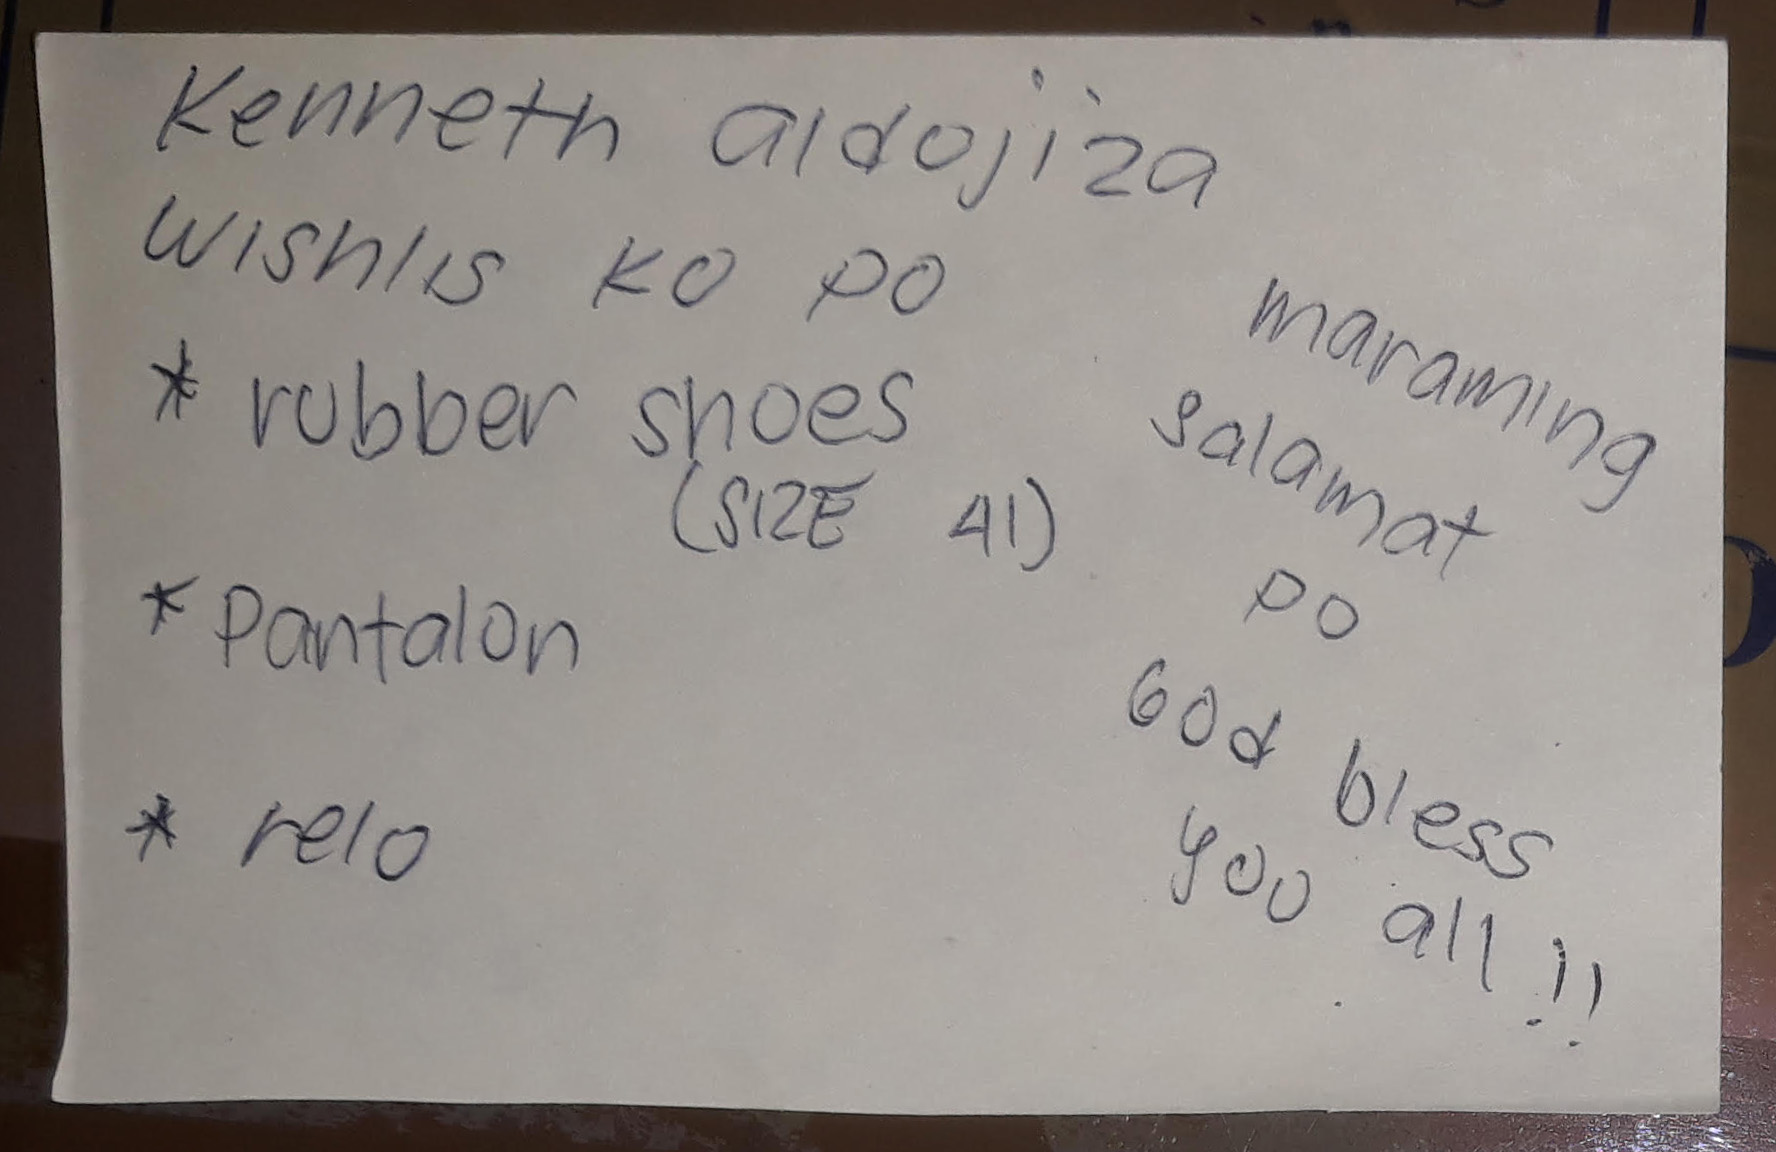 Kenneth aldojiza
wishlis ko po
* rubber shoes
(SIZE 41)
* Pantalon
* relo
maraming
salamat
po
God bless
you all !!